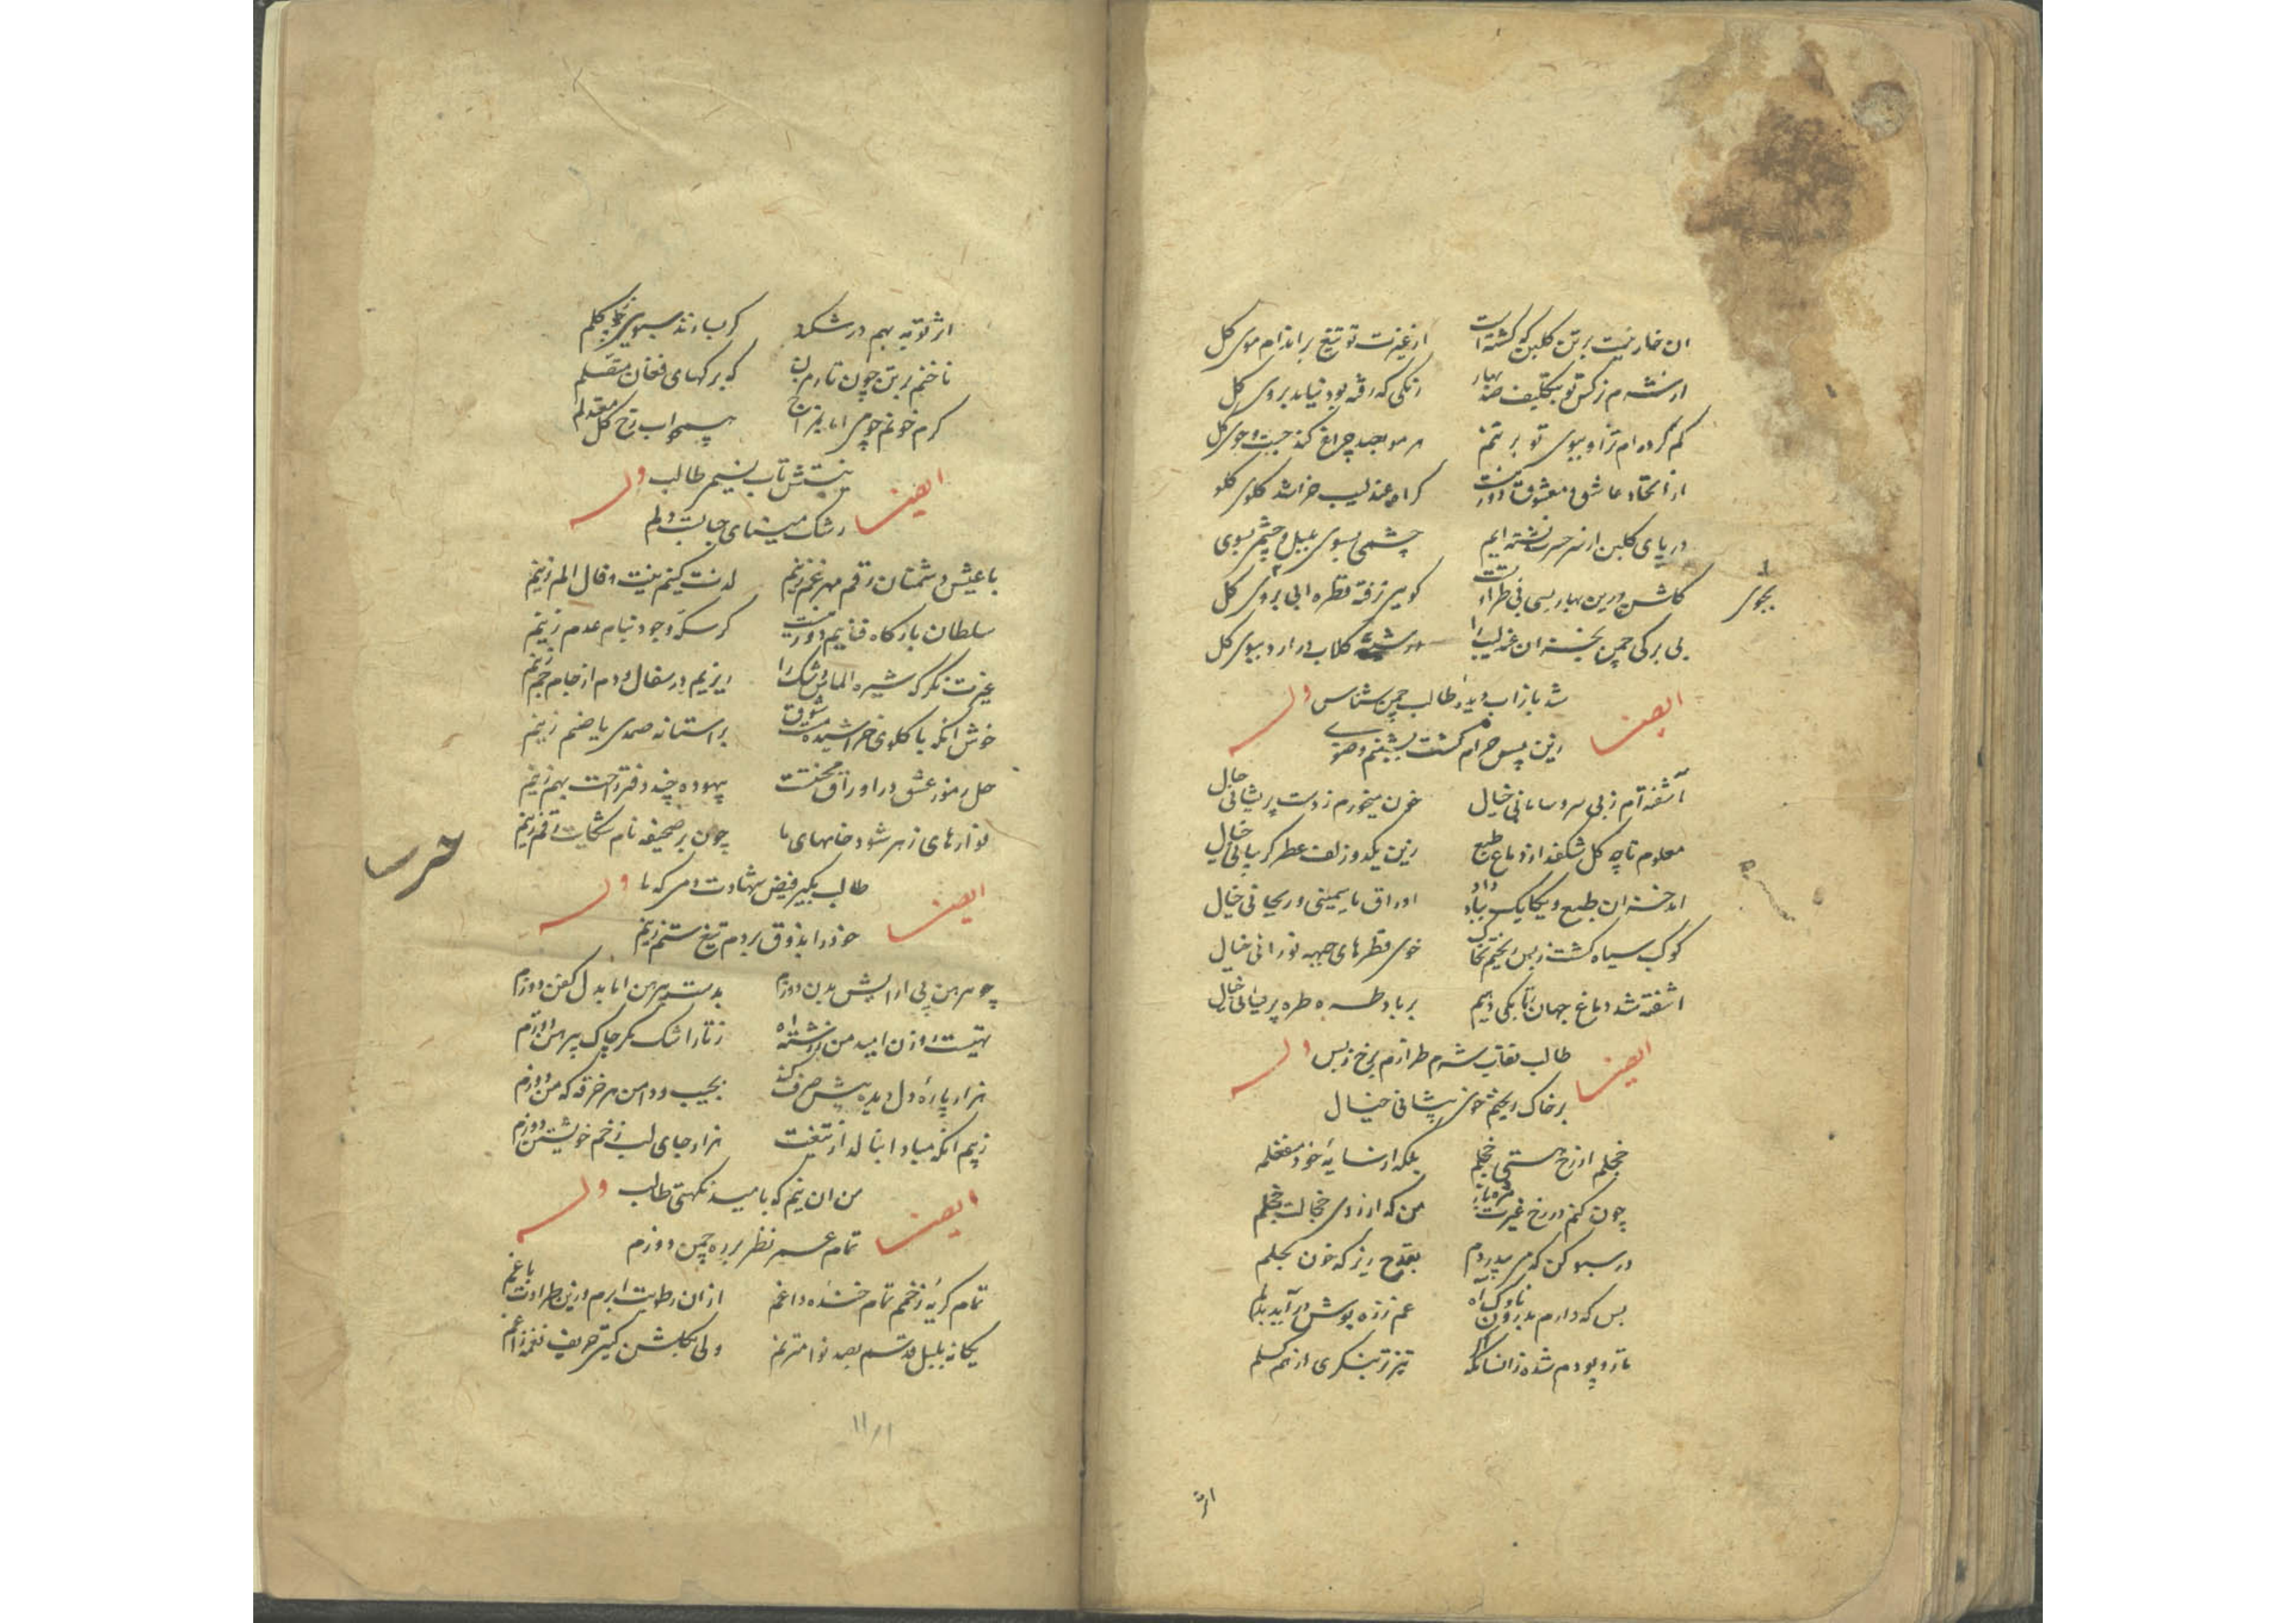 ان خار نیست بر تن گلبن که گشته است از غیرت تو تیغ بر اندام موی گل
ار نشه‌ام نرگس تو بتکلیف صد بهار رنگی که رفته بود نیاید بروی گل
گم کرده‌ام ترا و ببوی تو بر تنم هر مو بصد چراغ کند جست و جوی گل
از اتحاد عاشق و معشوق دور نیست گر آه عندلیب خراشد گلوی گل
در پای گلبن از سر حسرت نشسته‌ایم چشمی بسوی و چشمی بسوی
گلشن درین بهار بسی بی طراوتست گویی نرفته قطره آبی بروی گل
بجوی
بی برگی چمن ان عندلیب را در شیشه گلاب در ارد ببوی گل
ایضا شد باز اب دیده طالب چمن شناس وله
زین پس حرام گشت بشبنم وضوی
آشفته‌ام ز بی سر و سامانی خیال خون میخورم ز دست پریشانی خیال
معلوم تا چه گل شکفد از دماغ طبع زین یک دو زلف عطر گریبانی خیال
طبع و یکایک بباد داد اوراق یاسمینی و ریحانی خیال
کوکب سیاه گشت ز بس ریختم بخاک خوی قطرهای جبهه نورانی خیال
اشفته شد دماغ جهان تا بکی دهیم بر باد طره پریشانی خیال
ایضا طالب نقاب شرم طرازم برخ ز بس وله
بر خاک ریختم خوی پیشانی خیال
خجلم از رخ هستی خجلم بلکه از سایه خود منفعلم
چون کنم در رخ غیرت مژه باز من که از روی خجالت خجلم
در سبو کن که می پدرودم بقدح ریز که خون بحلم
بس که دارم بدرون ناوک آه غم زره پوش در آید بدلم
تار و پودم شده زانسانکه اگر تیزتر بنگری از هم گسلم
اثر
اثر توبه بهم در شکند گر بسازند سبویی ز گلم
ناخنم بر تن چون تار بین که برگهای فغان متصلم
گرم خونم چو می اما بمزاج همچو اب رخ گل معتدلم
ایضا نیستش تاب نسیم طالب وله
رشک مینای حبابست دلم
با عیش دشمنان رقم مهر غم زنیم لذت کنیم نیت و فال الم زنیم
سلطان بارگاه فناییم دور نیست گر سکه وجود بنام عدم زنیم
غیرت نگر که شیره الماس و اشک را ریزیم در سفال و دم از جام جم زنیم
خوش آنکه با گلوی خراشیده بر استانه صمدی یا صنم زنیم
حل رموز عشق در اوراق محنتست بیهوده چند دفتر راحت بهم زنیم
نوارهای زهر شود خامهای ما چون بر صحیفه نام شکایت رقم زنیم
ایضا طالب بگیر فیض شهادت دمی که ما وله
خود را بذوق بر دم تیغ ستم زنیم
چو پیرهن پی آرایش بدن دوزم بدست پیرهن اما بدل کفن دوزم
تهیست روزن امید من ز رشته آه ز تار اشک مگر چاک پیرهن دوزم
هزار پاره دل دیده پیش صرف کند بجیب و دامن هر خرقه که من دوزم
ز بیم آنکه مبادا بنالد از تیغت هزار جای لب زخم خویشتن دوزم
ایضا من ان نیم که بامید نکهتی طالب وله
تمام عمر نظر بر ره چمن دوزم
تمام گریه زخمم تمام خنده داغم ازان رطوبت ابرم وزین طراوت باغم
یگانه بلبل قدسم بصد نوا مترنم ولی بگلشن گیتی حریف نغمه زاغم
۱۱/۱